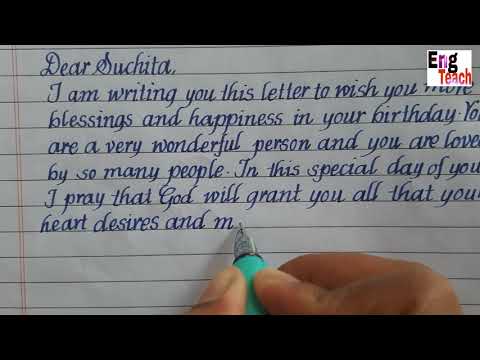 Eng
Teach
Dear Suchita,
I am writing you this letter to wish you more
blessings and happiness in your birthday. You
are a very wonderful person and you are love
by so many people. In this special day of you
I pray that God will grant you all that you
heart desires and m